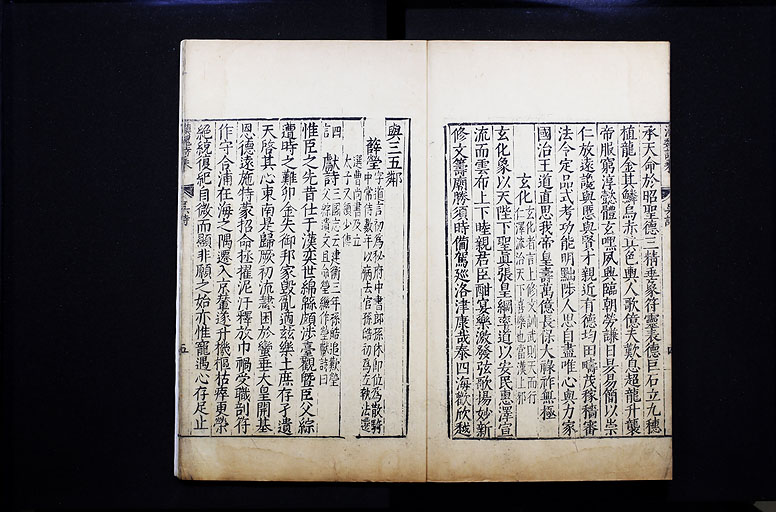 承天命於昭聖德三精垂象符靈表德巨石立九穗
植龍金其鱗烏赤其色輿人歌億夫歎息超龍升襲
帝服窮淳懿體玄嘿夙興臨朝勞謙日昃易簡以崇
仁放遠讒與慝舉賢才親近有德均田疇茂稼穡審
法令定品式考功能明黜陟人思自盡唯心與力家
國治王道直思我帝皇壽萬億長保天祿祚無極
玄化
玄化者言上修文訓武則天而行
仁澤流洽天下喜樂也當漢上邪
玄化象以天陛下聖真張皇綱率道以安民惠澤宣
流而雲布上下睦親君臣酣宴樂激發弦歌揚妙新
修文籌廟勝須時備駕巡洛津康哉泰四海歡欣越
與三五鄰
薛瑩
字道言初為秘府中書郎孫休即位為散騎
中常侍數年以病去官孫皓初為左執法遷
選曹尚書及立
太子又領少傅
獻詩
三國志云建衡三年孫皓追歎瑩
父綜遺文且命瑩繼作瑩獻詩曰
四
言
惟臣之先昔仕于漢奕世綿綿頗涉臺觀暨臣父綜
遭時之難卯金失御邦家毀亂適茲樂土庶存孑遺
天啓其心東南是歸厥初流隸困於蠻垂大皇開基
恩德遠施特蒙招命拯擢泥汙釋放巾褐受職剖符
作守合浦在海之隅遷入京輦遂升機樞枯瘁更榮
絕統復紀自微而顯非願之始亦惟寵遇心存足止
五